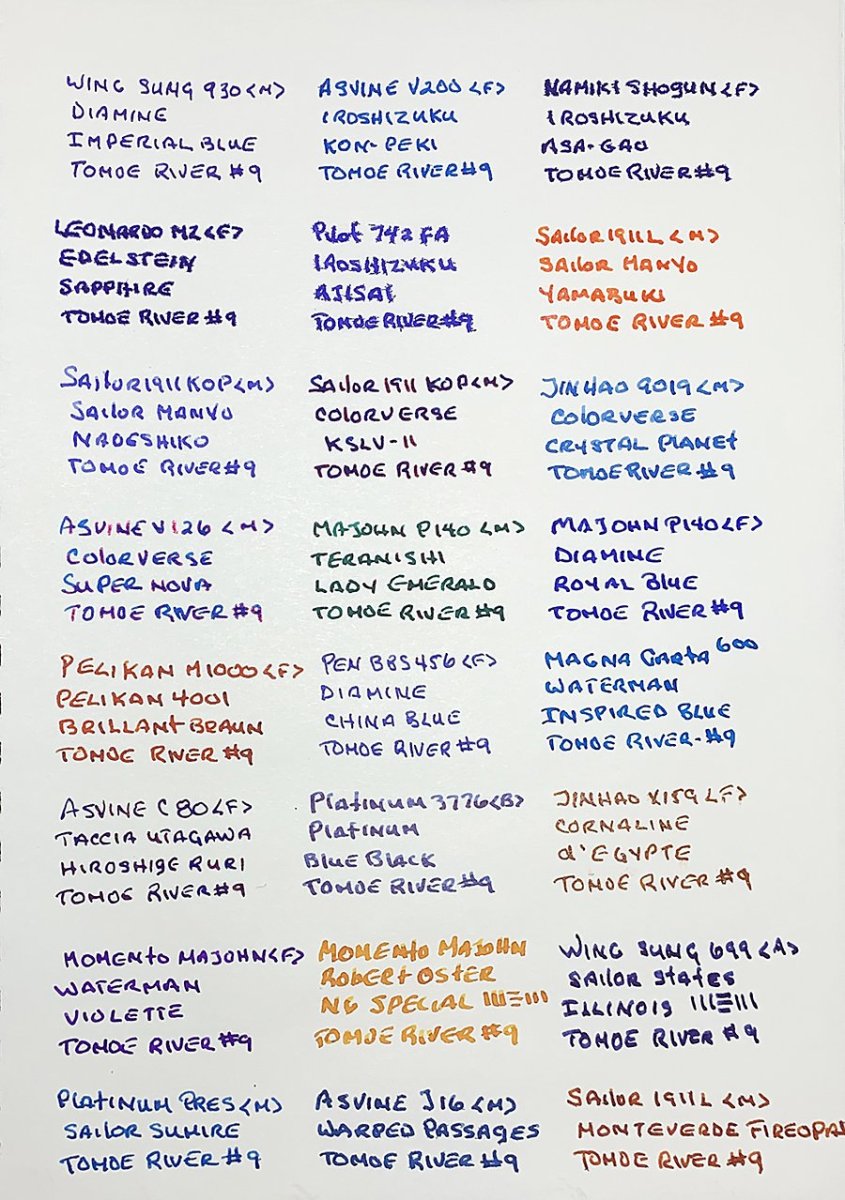 WING SUNG 930 <M>
DIAMINE
IMPERIAL BLUE
TOMOE RIVER #9
ASVINE V200 <F>
IROSHIZUKU
KON-PEKI
TOMOE RIVER #9
NAMIKI SHOGUN <F>
IROSHIZUKU
ASA-GAO
TOMOE RIVER #9
LEONARDO MZ <F>
EDELSTEIN
SAPPHIRE
TOMOE RIVER #9
Pilot 742 FA
IROSHIZUKU
AJISAI
TOMOE RIVER #9
SAILOR 1911L <M>
SAILOR MANYO
YAMABUKI
TOMOE RIVER #9
SAILOR 1911 KOP <M>
SAILOR MANYO
NADESHIKO
TOMOE RIVER #9
SAILOR 1911 KOP <M>
COLORVERSE
KSLV-II
TOMOE RIVER #9
JINHAO 9019 <M>
COLORVERSE
CRYSTAL PLANET
TOMOE RIVER #9
ASVINE V126 <M>
COLORVERSE
SUPER NOVA
TOMOE RIVER #9
MAJOHN P140 <M>
TERANISHI
LADY EMERALD
TOMOE RIVER #9
MAJOHN P140 <F>
DIAMINE
ROYAL BLUE
TOMOE RIVER #9
PELIKAN M1000 <F>
PELIKAN 4001
BRILLANT BRAUN
TOMOE RIVER #9
PEN BBS 456 <F>
DIAMINE
CHINA BLUE
TOMOE RIVER #9
MAGNA CARTA 600
WATERMAN
INSPIRED BLUE
TOMOE RIVER-#9
ASVINE C80 <F>
TACCIA UTAGAWA
HIROSHIGE RURI
TOMOE RIVER #9
PLATINUM 3776 <B>
PLATINUM
BLUE BLACK
TOMOE RIVER #9
JINHAO X159 <F>
CORNALINE
d'EGYPTE
TOMOE RIVER #9
MOMENTO MAJOHN <F>
WATERMAN
VIOLETTE
TOMOE RIVER #9
MOMENTO MAJOHN
ROBERT OSTER
NG SPECIAL
TOMOE RIVER #9
WING SUNG 699 <A>
SAILOR STATES
ILLINOIS
TOMOE RIVER #9
PLATINUM PRES <M>
SAILOR SUMIRE
TOMOE RIVER #9
ASVINE J16 <M>
WARPED PASSAGES
TOMOE RIVER #9
SAILOR 1911L <M>
MONTEVERDE FIREOPAL
TOMOE RIVER #9